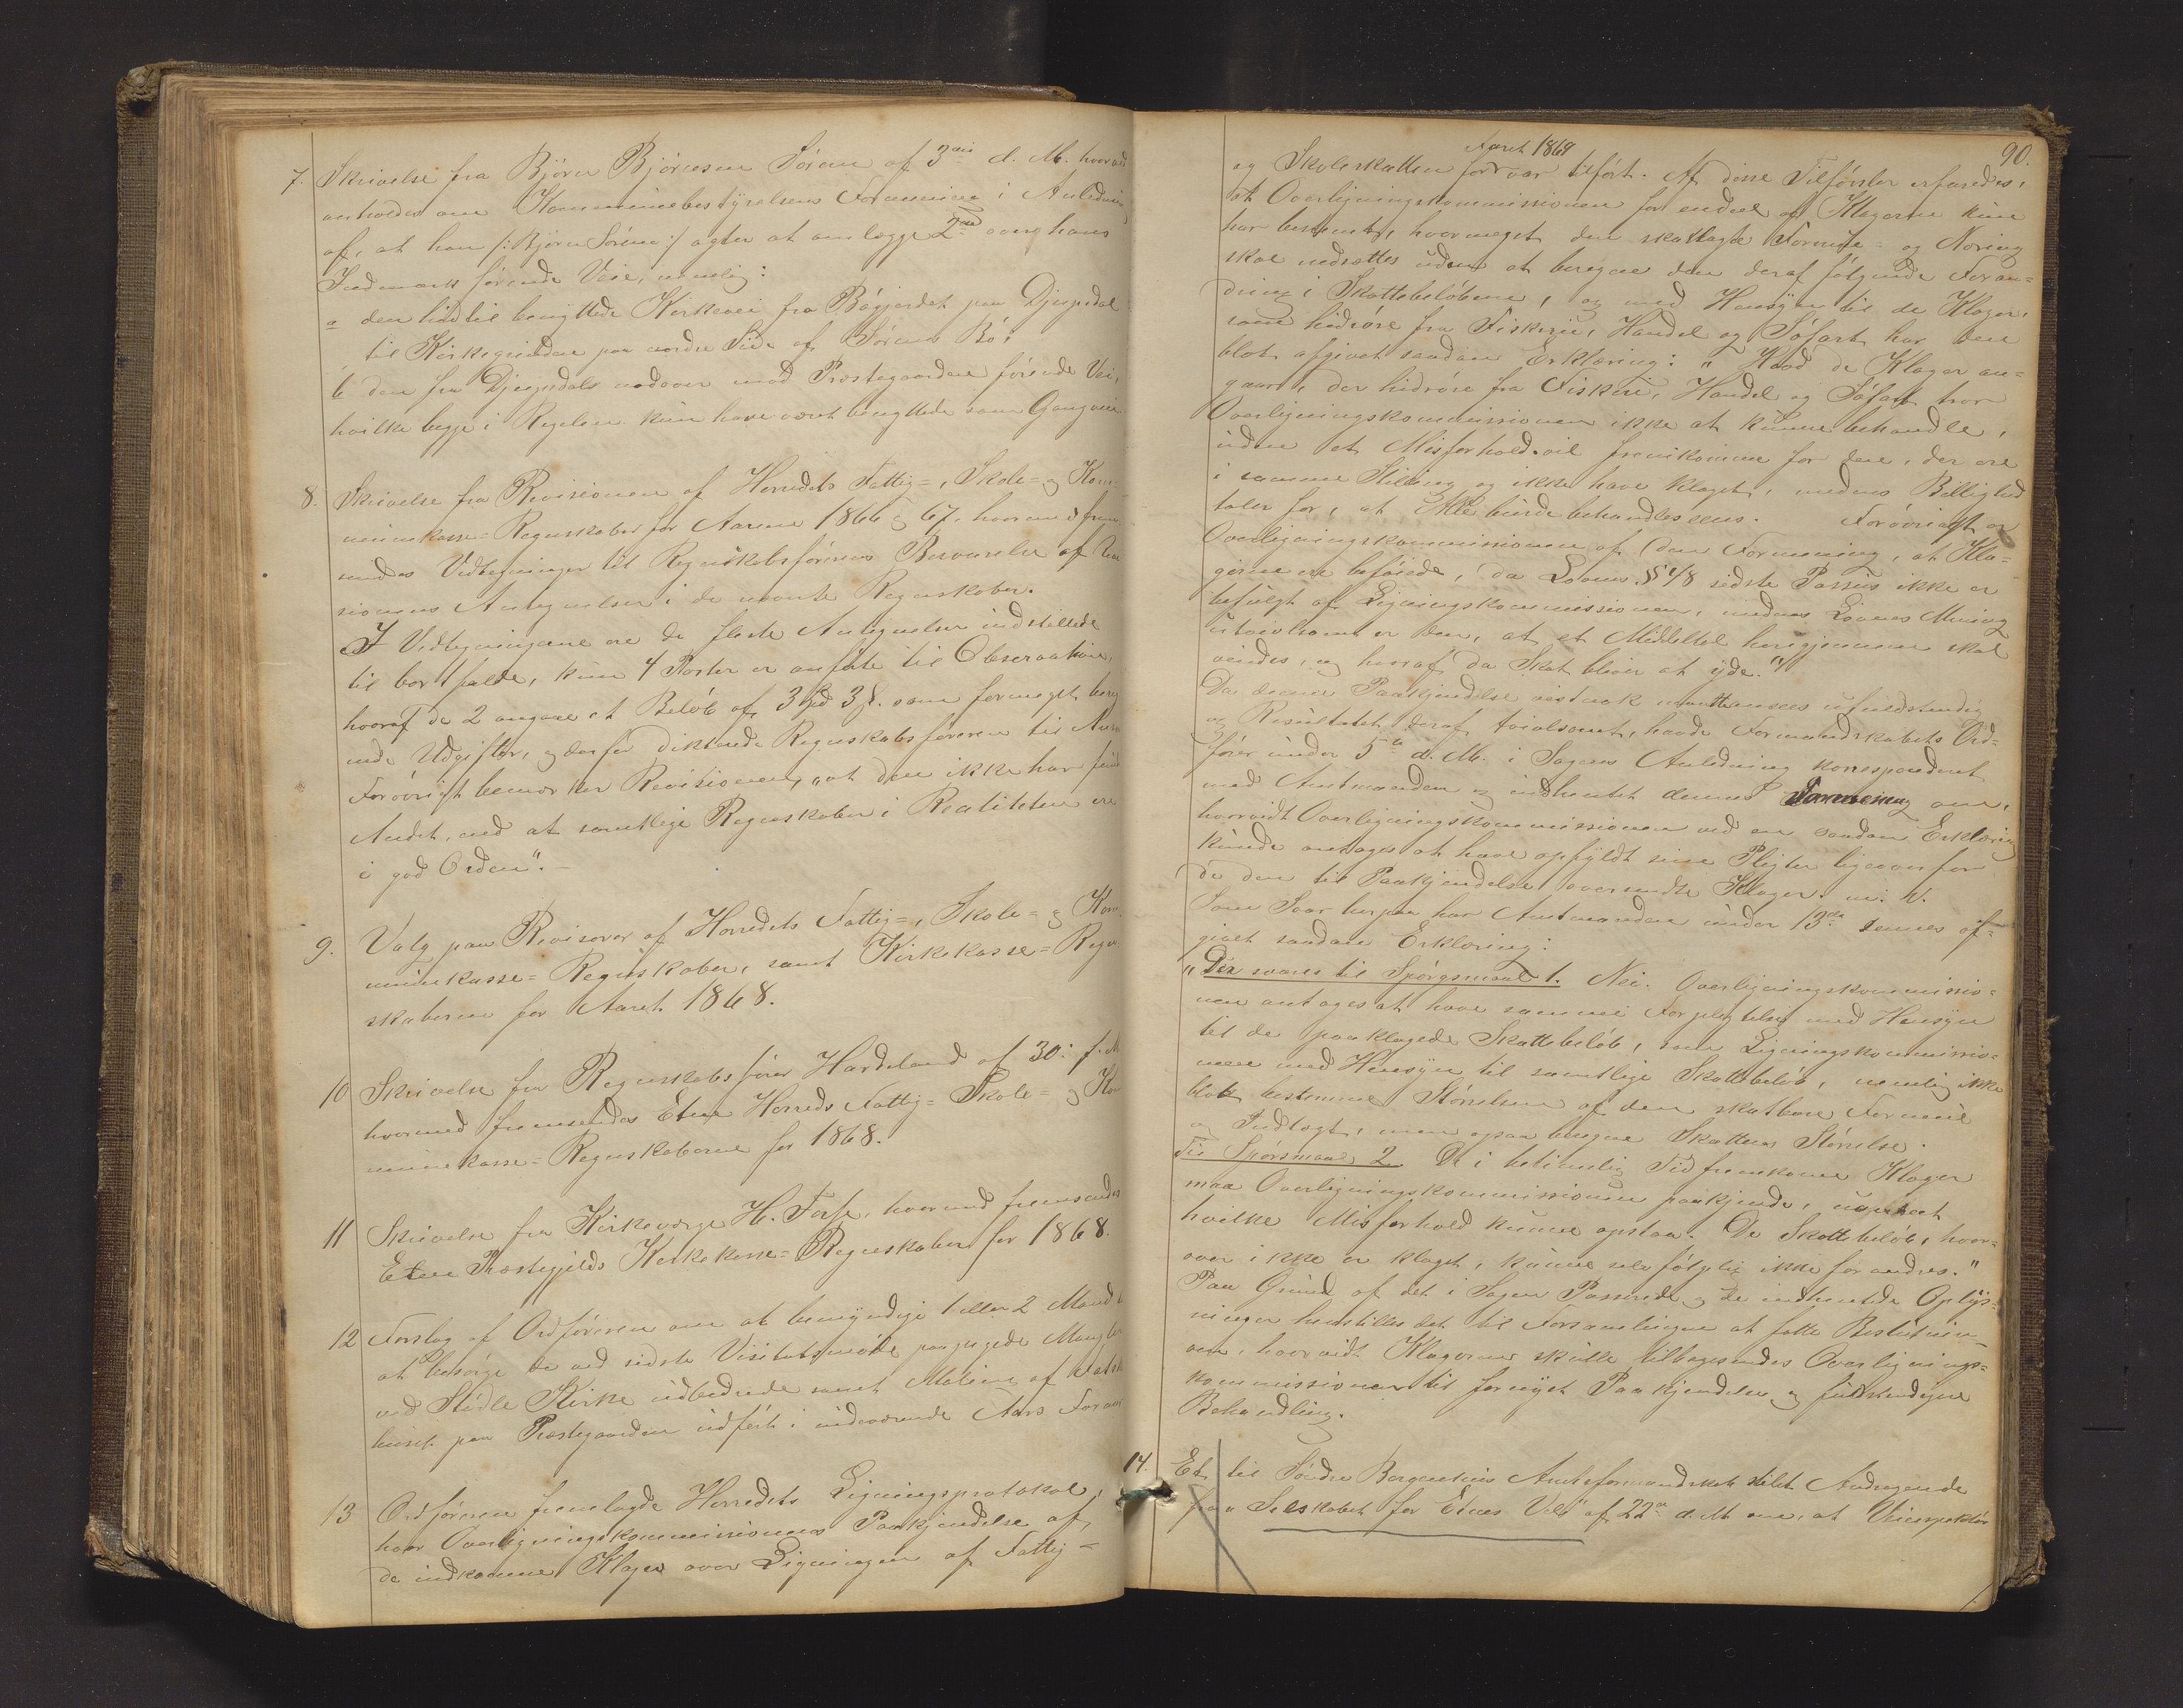 7. Skrivelse fra Björn Björnesen Sörem af 3die d. M. hvorved
anholdes om Kommunebestÿrelsens Formening i Anledning
af, at han /: Björn Sörem :/ agter at omlægge 2nde over hans
Indmark förende Veie, nemlig:
a den hidtil benÿttede Kirkevei fra Bögjerdet paa Djupedal
til Kirkegrinden paa nordre Side af Sörems Bö;
b den fra Djupedals nedover mod Præstegaarden förende Vei,
hvilke begge i Regelen kun have været benÿttede som Gangveie
8. Skrivelse fra Revisionen af Herredets Fattig=, Skole= og Kom=
munekasse=Regnskaber for Aarene 1866 og 67, hvormed frem
sendes Vedtegninger til Regnskabsförerens Besvarelse af Revi
sionens Antegnelser i de nævnte Regnskaber.
I Vedtegningerne ere de fleste Antegnelser indstillede
til bortfalde, kun 4 Poster er anförte til Observation,
hvoraf de 2 angaae et Belöb af 3 Spd 3 ß. som formeget bereg
nede Udgifter, og derfor Regnskabsföreren til Ansv
Forövrigt bemærker Revisionen, "at den ikke har fundet
Andet, end at samtlige Regnskaber i Realiteten ere
i god Orden".
9. Valg paa Revisorer af Herredets Fattig=, Skole= og Kom
munekasse=Regnskaber, samt Kirkekasse=Regn
skaberne for Aaret 1868.
10 Skrivelse fra Regnskabsförer Hardeland af 30. f. M
hvormed fremsendes Etne Herreds Fattig= Skole= og Kom
munekasse=Regnskaberne for 1868.
11 Skrivelse fra Kirkeværge H. Fosse, hvormed fremsendes
Etne Præstegjelds Kirkekasse=Regnskaber for 1868.
12 Forslag af Ordföreren om at bemÿndige 1 eller 2 Mænd til
at besörge de ved sidste Visitatsmöde paapegede Mangler
ved Stödle Kirke udbedrede samt Maling af
huset paa Præstegaarden udfört i indeværende Aars Foraar
13 Ordföreren fremlagde Herredets Ligningsprotokol,
hvor Overligningskommissionens Paakjendelse af
de indkomne Klager over Ligningen af Fattig=
Aaret 1869
90.
og Skoleskatten forvar tilfört. Af disse Tilförsler erfaredes,
at Overligningskommissionen for endeel af Klagerne kun
har bestemt, hvormeget den skatlagte Formue= og Næring
skal nedsættes uden at beregne den deraf fölgende Foran=
dring i Skattebelöbene, og med Hensÿn til de Klager,
som hidröre fra Fiskerie, Handel og Söfart har den
blot afgivet saadan Erklæring: "Hvad de Klager an=
gaar, der hidröre fra Fiskeri, Handel og Söfart tror
Overligningskommissionen ikke at kunne behandle,
uden et Misforhold vil fremkomme for dem, der ere
i samme Stilling og ikke have klaget, medens Billighed
taler for, at Alle burde behandles eens. Forövrigt er
Overligningskommissionen af den Formening, at Kla=
gerne ere beföiede, da Lovens § 48 sidste Passus ikke er
befulgt af Ligningskommissionen, medens Lovens Mening
utvivlsomt er den, at et Middeltal herigjennem skal
vindes, og hvoraf da Skat bliver at ÿde."
Da denne Paakjendelse vistnok maatte ansees ufuldstendig
og Resultatet deraf tvivlsomt, havde Formandskabets Ord=
förer under 5te d. M. i Sagens Anledning korresponderet
med Amtmanden og indhentet dennes Formening om,
hvorvidt Overligningskommissionen ved en saadan Erklæring
kunde antages at have opfÿldt sine Pligter ligeoverfor
de den til Paakjendelse oversendte Klager. m. V.
Som Svar herpaa har Amtmanden under 13de dennes af=
givet saadan Erklæring:
"Der svares til Spörgsmaal 1. Nei. Overligningskommissio=
nen antages at have samme Forpligtelse med Hensÿn
til de paaklagede Skattebelöb, som Ligningskommissio=
nen med Hensÿn til samtlige Skattebelöb, nemlig ikke
blot bestemme Störrelsen af den skatbare Formue
og Indtægt, men ogsaa beregne Skattens Störrelse.
Til Spörsmaal 2. De i betimelig Tid fremkomne Klager
maa Overligningskommissionen paakjende, uanseet
hvilke Misforhold kunne opstaa. De Skattebelöb, hvor=
over ikke er klaget, kunne selvfölgelig ikke forandres."
Paa Grund af det i Sagen Passerede og de indhentede Oplÿs=
ninger henstilles det til Forsamlingen at fatte Beslutning
om, hvorvidt Klagerne skulle tilbagesendes Overlignings=
kommissionen til fornÿet Paakjendelse og fuldstendigere
Behandling.
14. Et til Söndre Bergenhus Amtsformandskab stilet Andragende
fra "Selskabet for Etnes Vel" af 22de d. M. om, at Veiinspektör